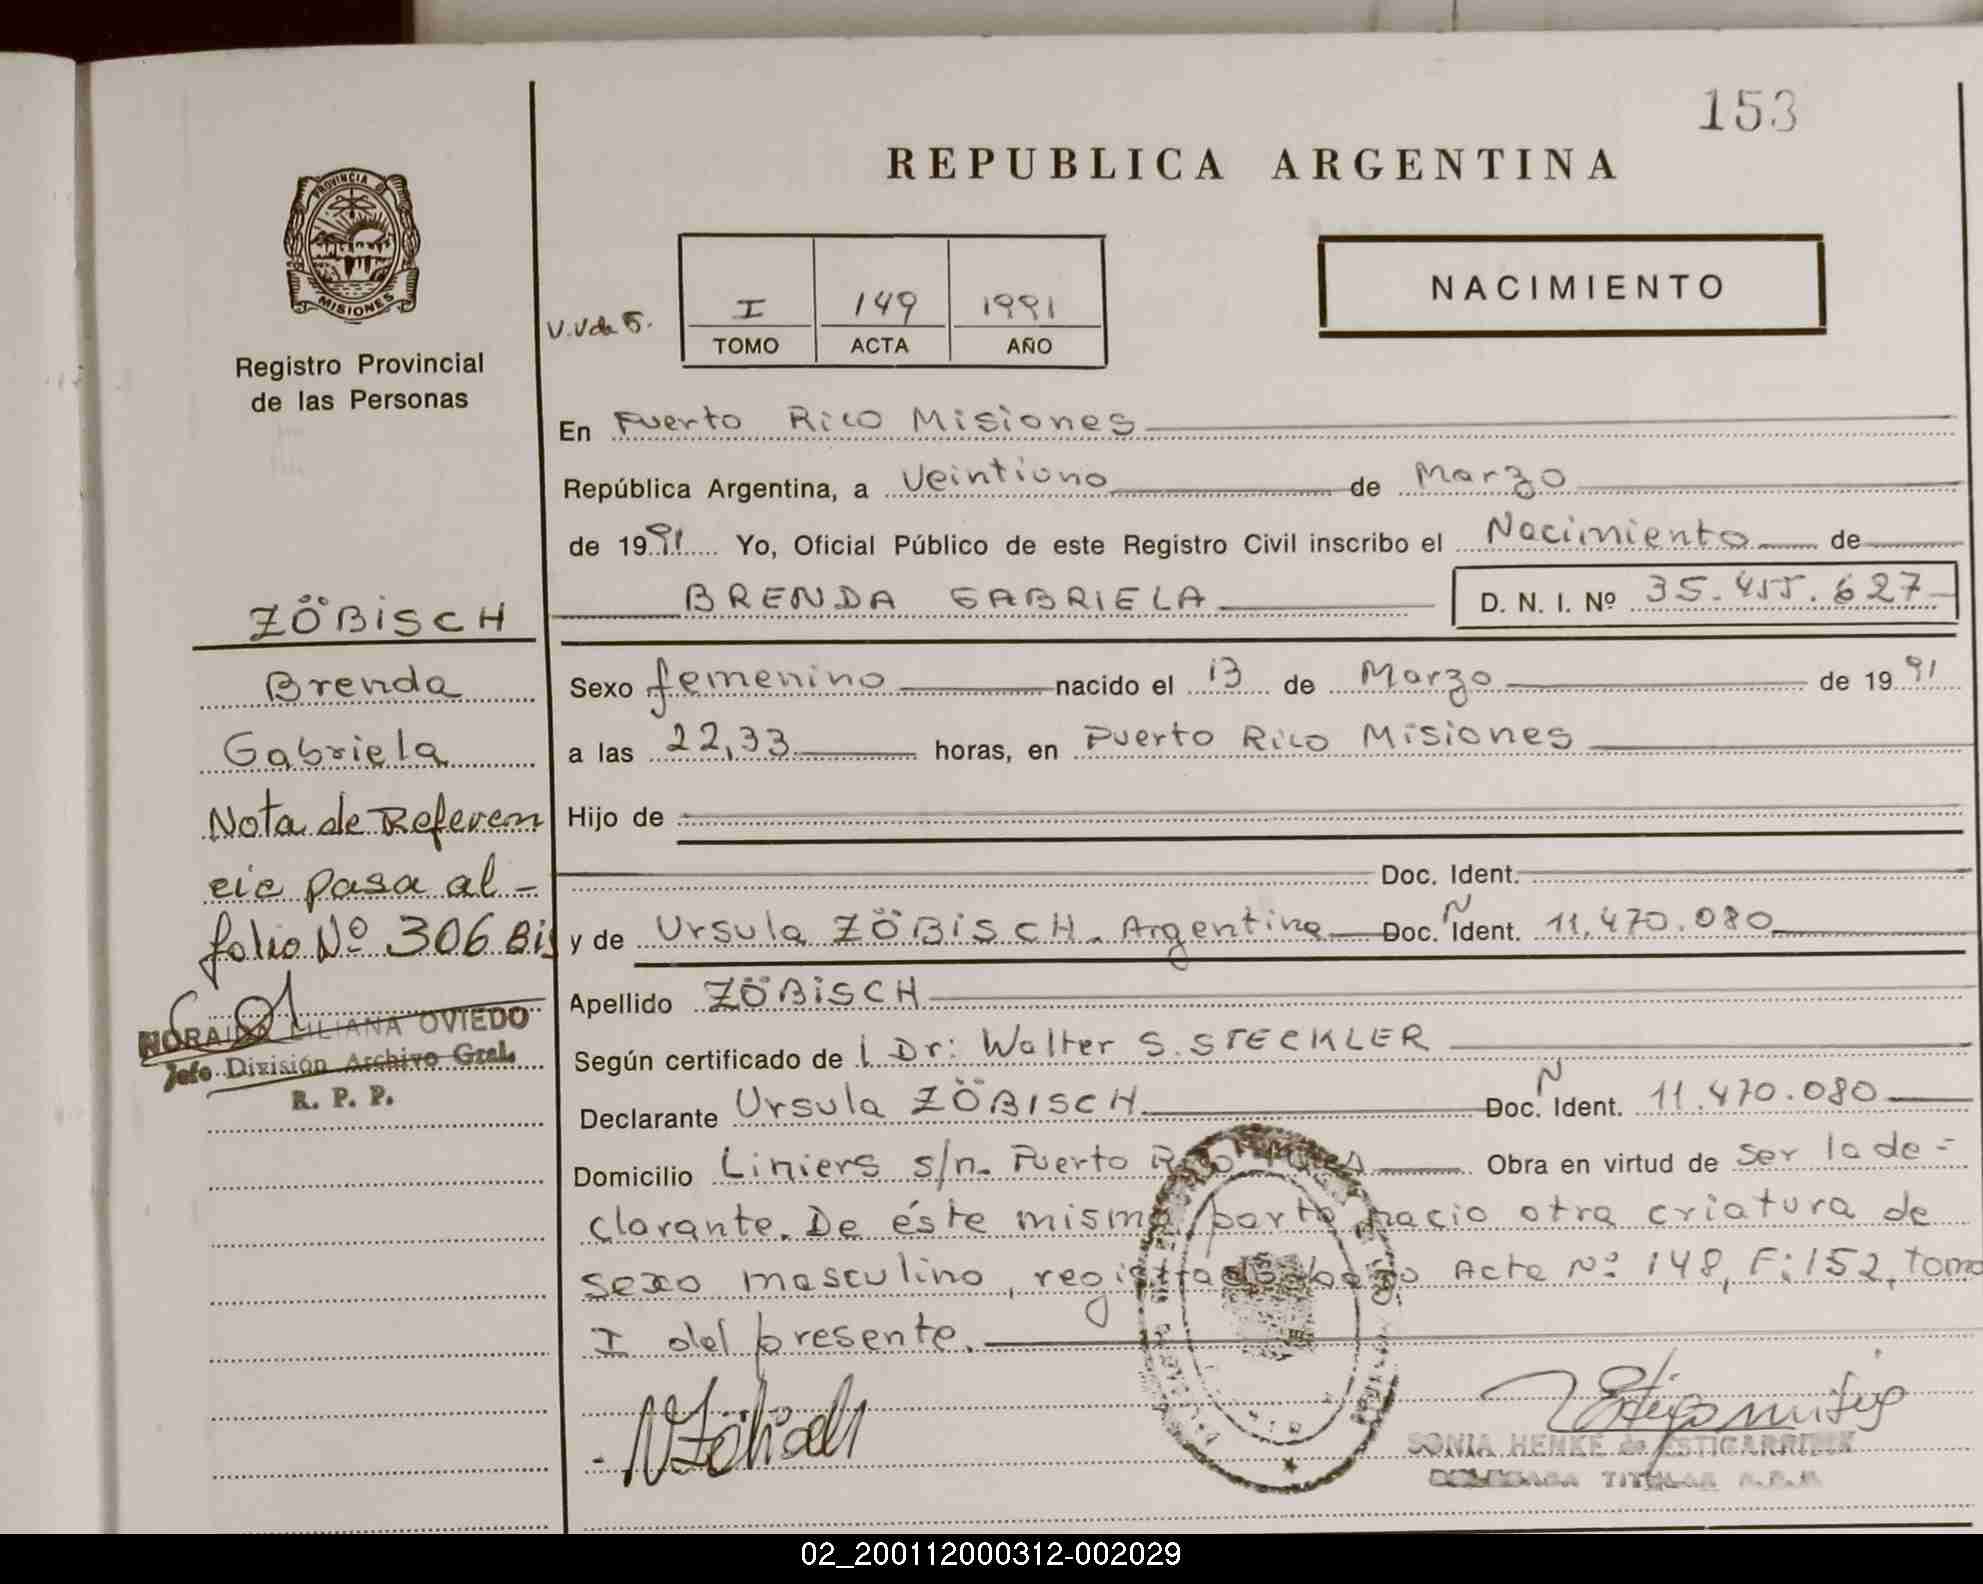 153
REPUBLICA ARGENTINA
PROVINCIA DE
MISIONES
Registro Provincial
de las Personas
NACIMIENTO
V.Vda 5.
I 149 1991
TOMO ACTA AÑO
En Puerto Rico Misiones
República Argentina, a Veintiuno de Marzo
de 1991 Yo, Oficial Público de este Registro Civil inscribo el Nacimiento de
BRENDA GABRIELA D. N. I. Nº 35.455.627
ZÖBISCH
Brenda
Gabriela
Nota de Referen
cia pasa al -
folio Nº 306 Bis
NORAIDA LILIANA OVIEDO
Jefe División Archivo Gral.
R. P. P.
Sexo femenino nacido el 13 de Marzo de 1991
a las 22,33 horas, en Puerto Rico Misiones
Hijo de
Doc. Ident.
y de Ursula ZÖBISCH. Argentina Doc. N Ident. 11.470.080
Apellido ZÖBISCH
Según certificado de l Dr: Walter S. STECKLER
Declarante Ursula ZÖBISCH Doc. N Ident. 11.470.080
Domicilio Liniers s/n. Puerto Rico Mnes Obra en virtud de ser la de=
clarante. De éste mismo parto nacio otra criatura de
sexo masculino, registrado bajo Acta Nº 148, F: 152, tomo
I del presente.
SONIA HENKE de ESTIGARRIBIA
DELEGADA TITULAR R.P.P.
02_200112000312-002029